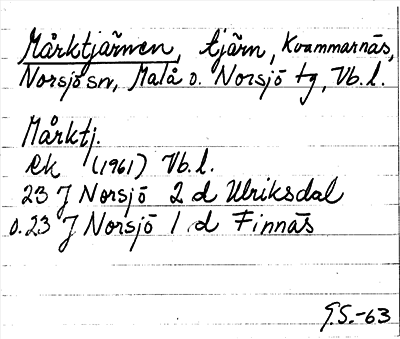 Mårktjärnen, tjärn, Kvammarnäs,
Norsjö sn, Malå o. Norsjö tg, Vb. l.
Mårktj.
Rk (1961) Vb. l.
23 J Norsjö 2 d Ulriksdal
o. 23 J Norsjö 1 d Finnäs
G.S.-63